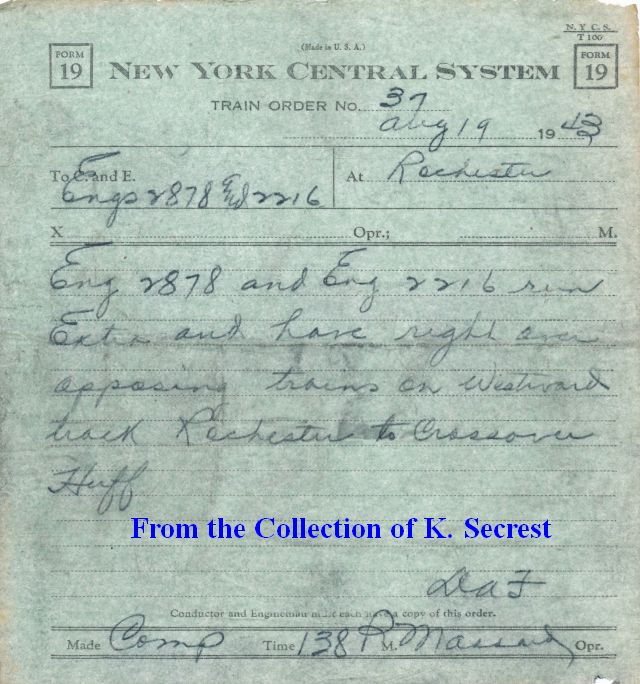 N.Y.C.S.
T 100
(Made in U.S.A.)
FORM 19
NEW YORK CENTRAL SYSTEM
FORM 19
TRAIN ORDER No. 37
Aug 19 1943
To C. and E. At Rochester
Engs 2878 and 2216
X Opr.; M.
Eng 2878 and Eng 2216 run
Extra and have right over
opposing trains on Westward
track Rochester to Crossover
Huff
From the Collection of K. Secrest
Conductor and Engineman must each have a copy of this order.
Made Comp Time 138 P M. Opr.